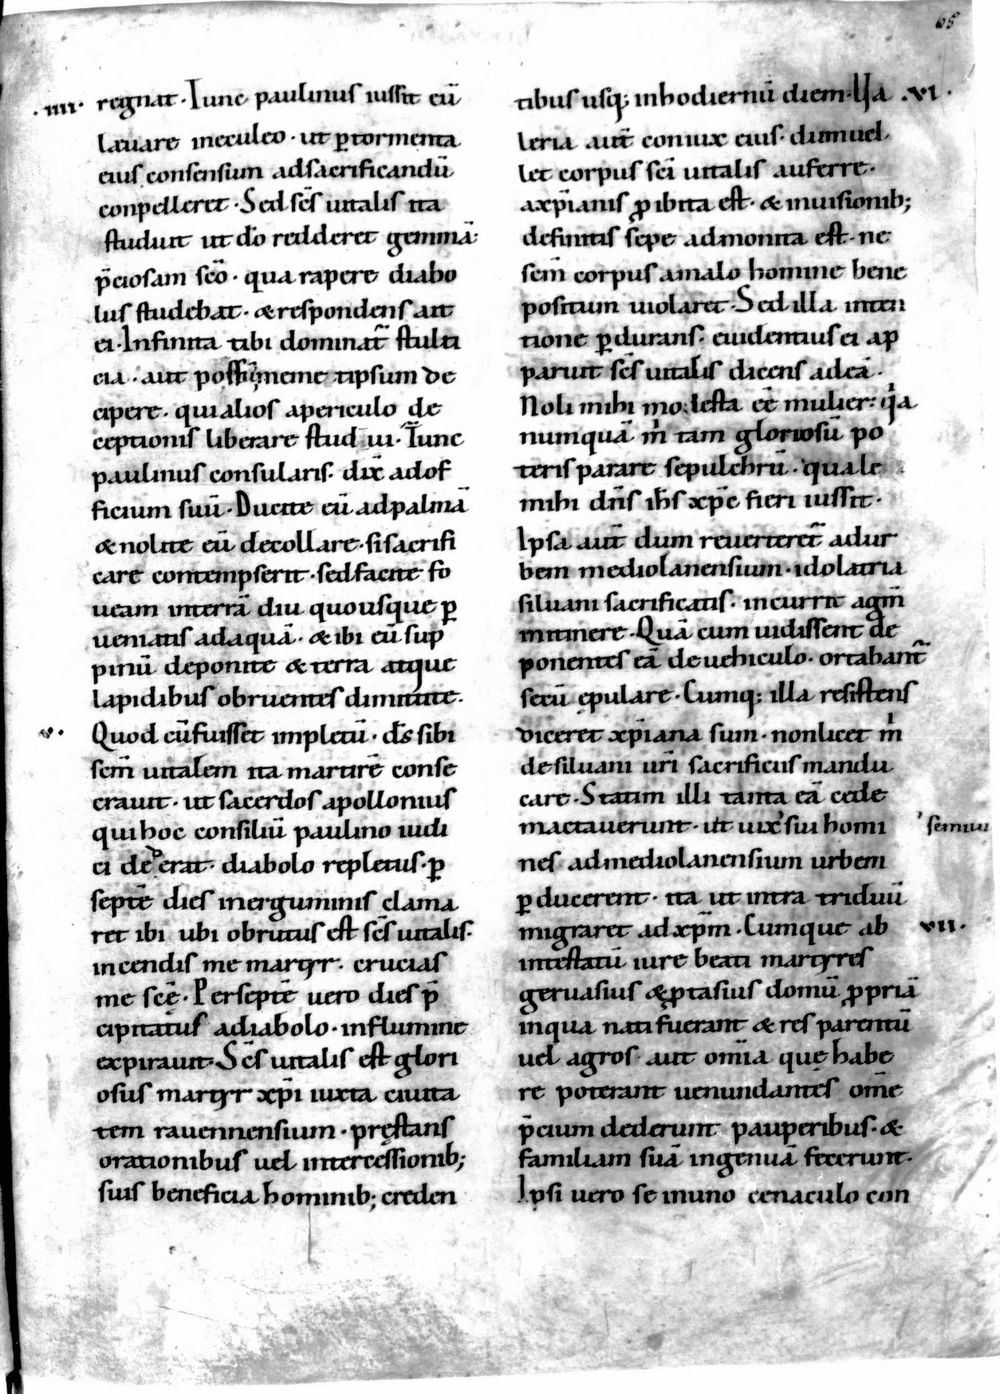 65
.IIII. regnat. Tunc paulinus iussit eū
lauare ineculeo. ut ꝑtormenta
eius consensum adsacrificandū
conpelleret. Sed scs̄ uitalis ita
studuit ut dō redderet gemmā
p̄ciosam scō. qua rapere diabo
lus studebat. & respondens ait
ei. Infinita tibi dominat̄ stulti
cia. aut possūmeme tipsum de
cipere. qui alios apericulo de
ceptionis liberare stud ui. Tunc
paulinus consularis. dix̄ adof
ficium suū. Ducite eū adpalmā
& nolite eū decollare. sisacrifi
care contempserit. sed facite fo
ueam interrā diu quousque ꝑ
ueniatis adaquā. & ibi eū sup̄
pinū deponite & terra atque
lapidibus obruentes dimittite.
.v. Quod cū fuisset impletū. ds̄ sibi
sem̄ uitalem ita martirē conse
crauit. ut sacerdos apollonius
qui hoc consiliū paulino iudi
ci dederat. diabolo repletus. ꝑ
septē dies inerguminis clama
ret ibi ubi obrutus est scs̄ uitalis.
incendis me martyr. crucias
me scē. Per septē uero dies p̄
cipitatus adiabolo. influmine
expirauit. Scs̄ uitalis est glori
osus martyr xp̄i iuxta ciuita
tem rauennensium. pręstans
orationibus uel intercessionib;
suis beneficia hominib; creden
tibus usq; inhodiernū diem. Ua .VI.
leria aut̄ coniux eius. dumuel
let corpus scī uitalis auferre.
axp̄ianis ꝓibita est. & inuisionib;
definitis sepe admonita est. ne
sem̄ corpus amalo homine bene
positum uiolaret. Sed illa inten
tione ꝑdurans. euidentius ei ap
paruit scs̄ uitalis dicens adeā.
Noli mihi molesta eē mulier: qa
numquā m tam gloriosū po
teris parare sepulchrū. quale
mihi dn̄s ih̄s xp̄c fieri iussit.
Ipsa aut̄ dum reuerteret̄ adur
bem mediolanensium. idolatria
siluani sacrificatis. incurrit agm̄
initinere. Quā cum uidissent de
ponentes eā deuehiculo. ortabant̄
secū epulare. Cumq; illa resistens
diceret xp̄iana sum. nonlicet m
desiluani urī sacrificiis mandu
care. Statim illi tanta eā cede
mactauerunt. ut uix sui homi semiui
nes admediolanensium urbem
ꝑducerent. ita ut intra triduū
migraret adxp̄m. Cumque ab .VII.
intestatū iure beati martyres
geruasius & ꝓtasius domū ꝓpriā
inqua nati fuerant & res parentū
uel agros aut omīa quę habe
re poterant uenundantes om̄e
p̄cium dederunt pauperibus. &
familiam suā ingenuā fecerunt.
Ipsi uero se inuno cenaculo con